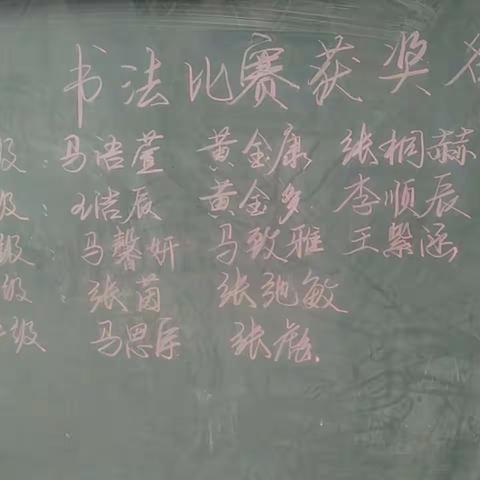 书法比赛获奖名
级：马语萱 黄金康 张桐赫
级：王浩辰 黄金多 李顺辰
级：马馨妍 马致雅 王紫涵
级：张茵 张弛敏
级 马思辰 张